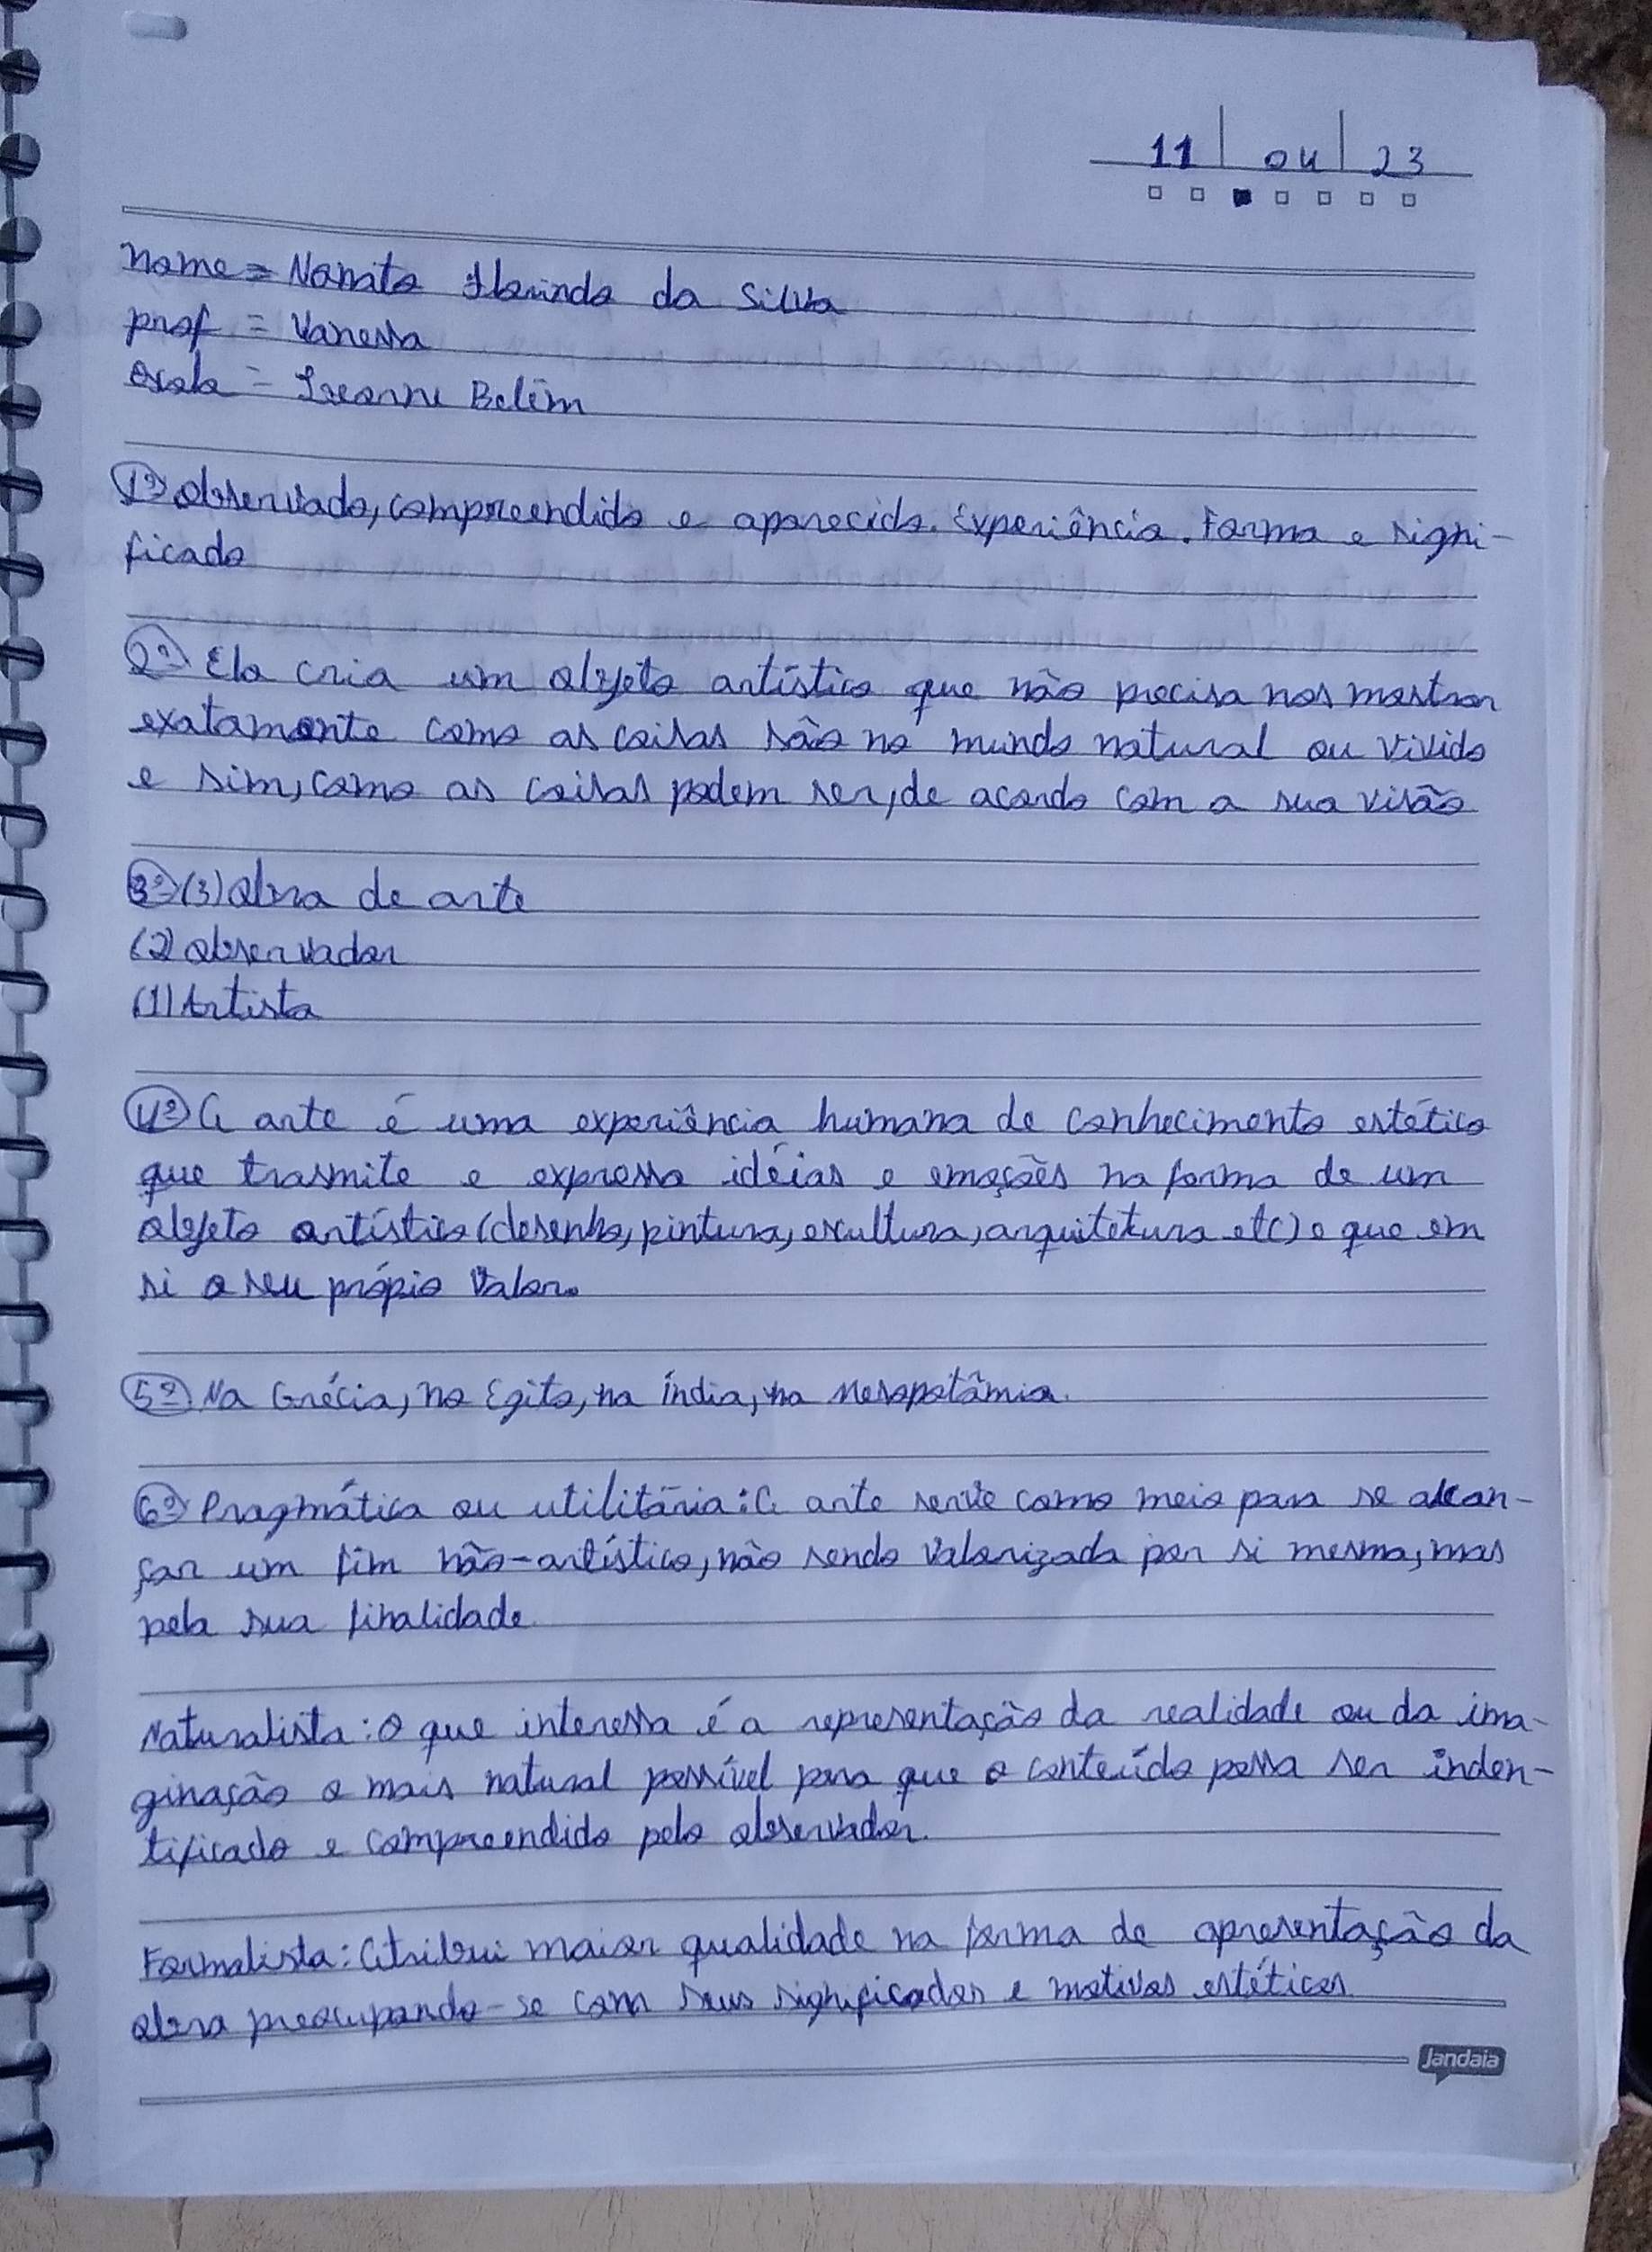 11 04 23
nome = Nonato Florindo da Silva
prof = Vanessa
escola = Belém
1º) observado, compreendido e aparecido. Experiência. Forma e signi-
ficado
2º) Ela cria um objeto artístico que não precisa nos mostrar
exatamente como as coisas são no mundo natural ou vivido
e sim, como as coisas podem ser, de acordo com a sua visão
3º) (3) obra de arte
(2) observador
(1) Artista
4º) A arte é uma experiência humana de conhecimento estético
que trasmite e expressa idéias e emoções na forma de um
objeto artístico (desenho, pintura, escultura, arquitetura etc) e que em
si o seu próprio valor.
5º) Na Grécia, no Egito, na Índia, na Mesopotâmia.
6º) Pragmática ou utilitária: A arte serve como meio para se alcan-
çar um fim não-artístico, não sendo valorizada por si mesma, mas
pela sua finalidade
Naturalista: O que interessa é a representação da realidade ou da ima-
ginação o mais natural possível para que o conteúdo possa ser inden-
tificado e compreendido pelo observador.
Formalista: Atribui maior qualidade na forma de apresentação da
obra preocupando-se com seus significados e motivos estéticos
Jandaia